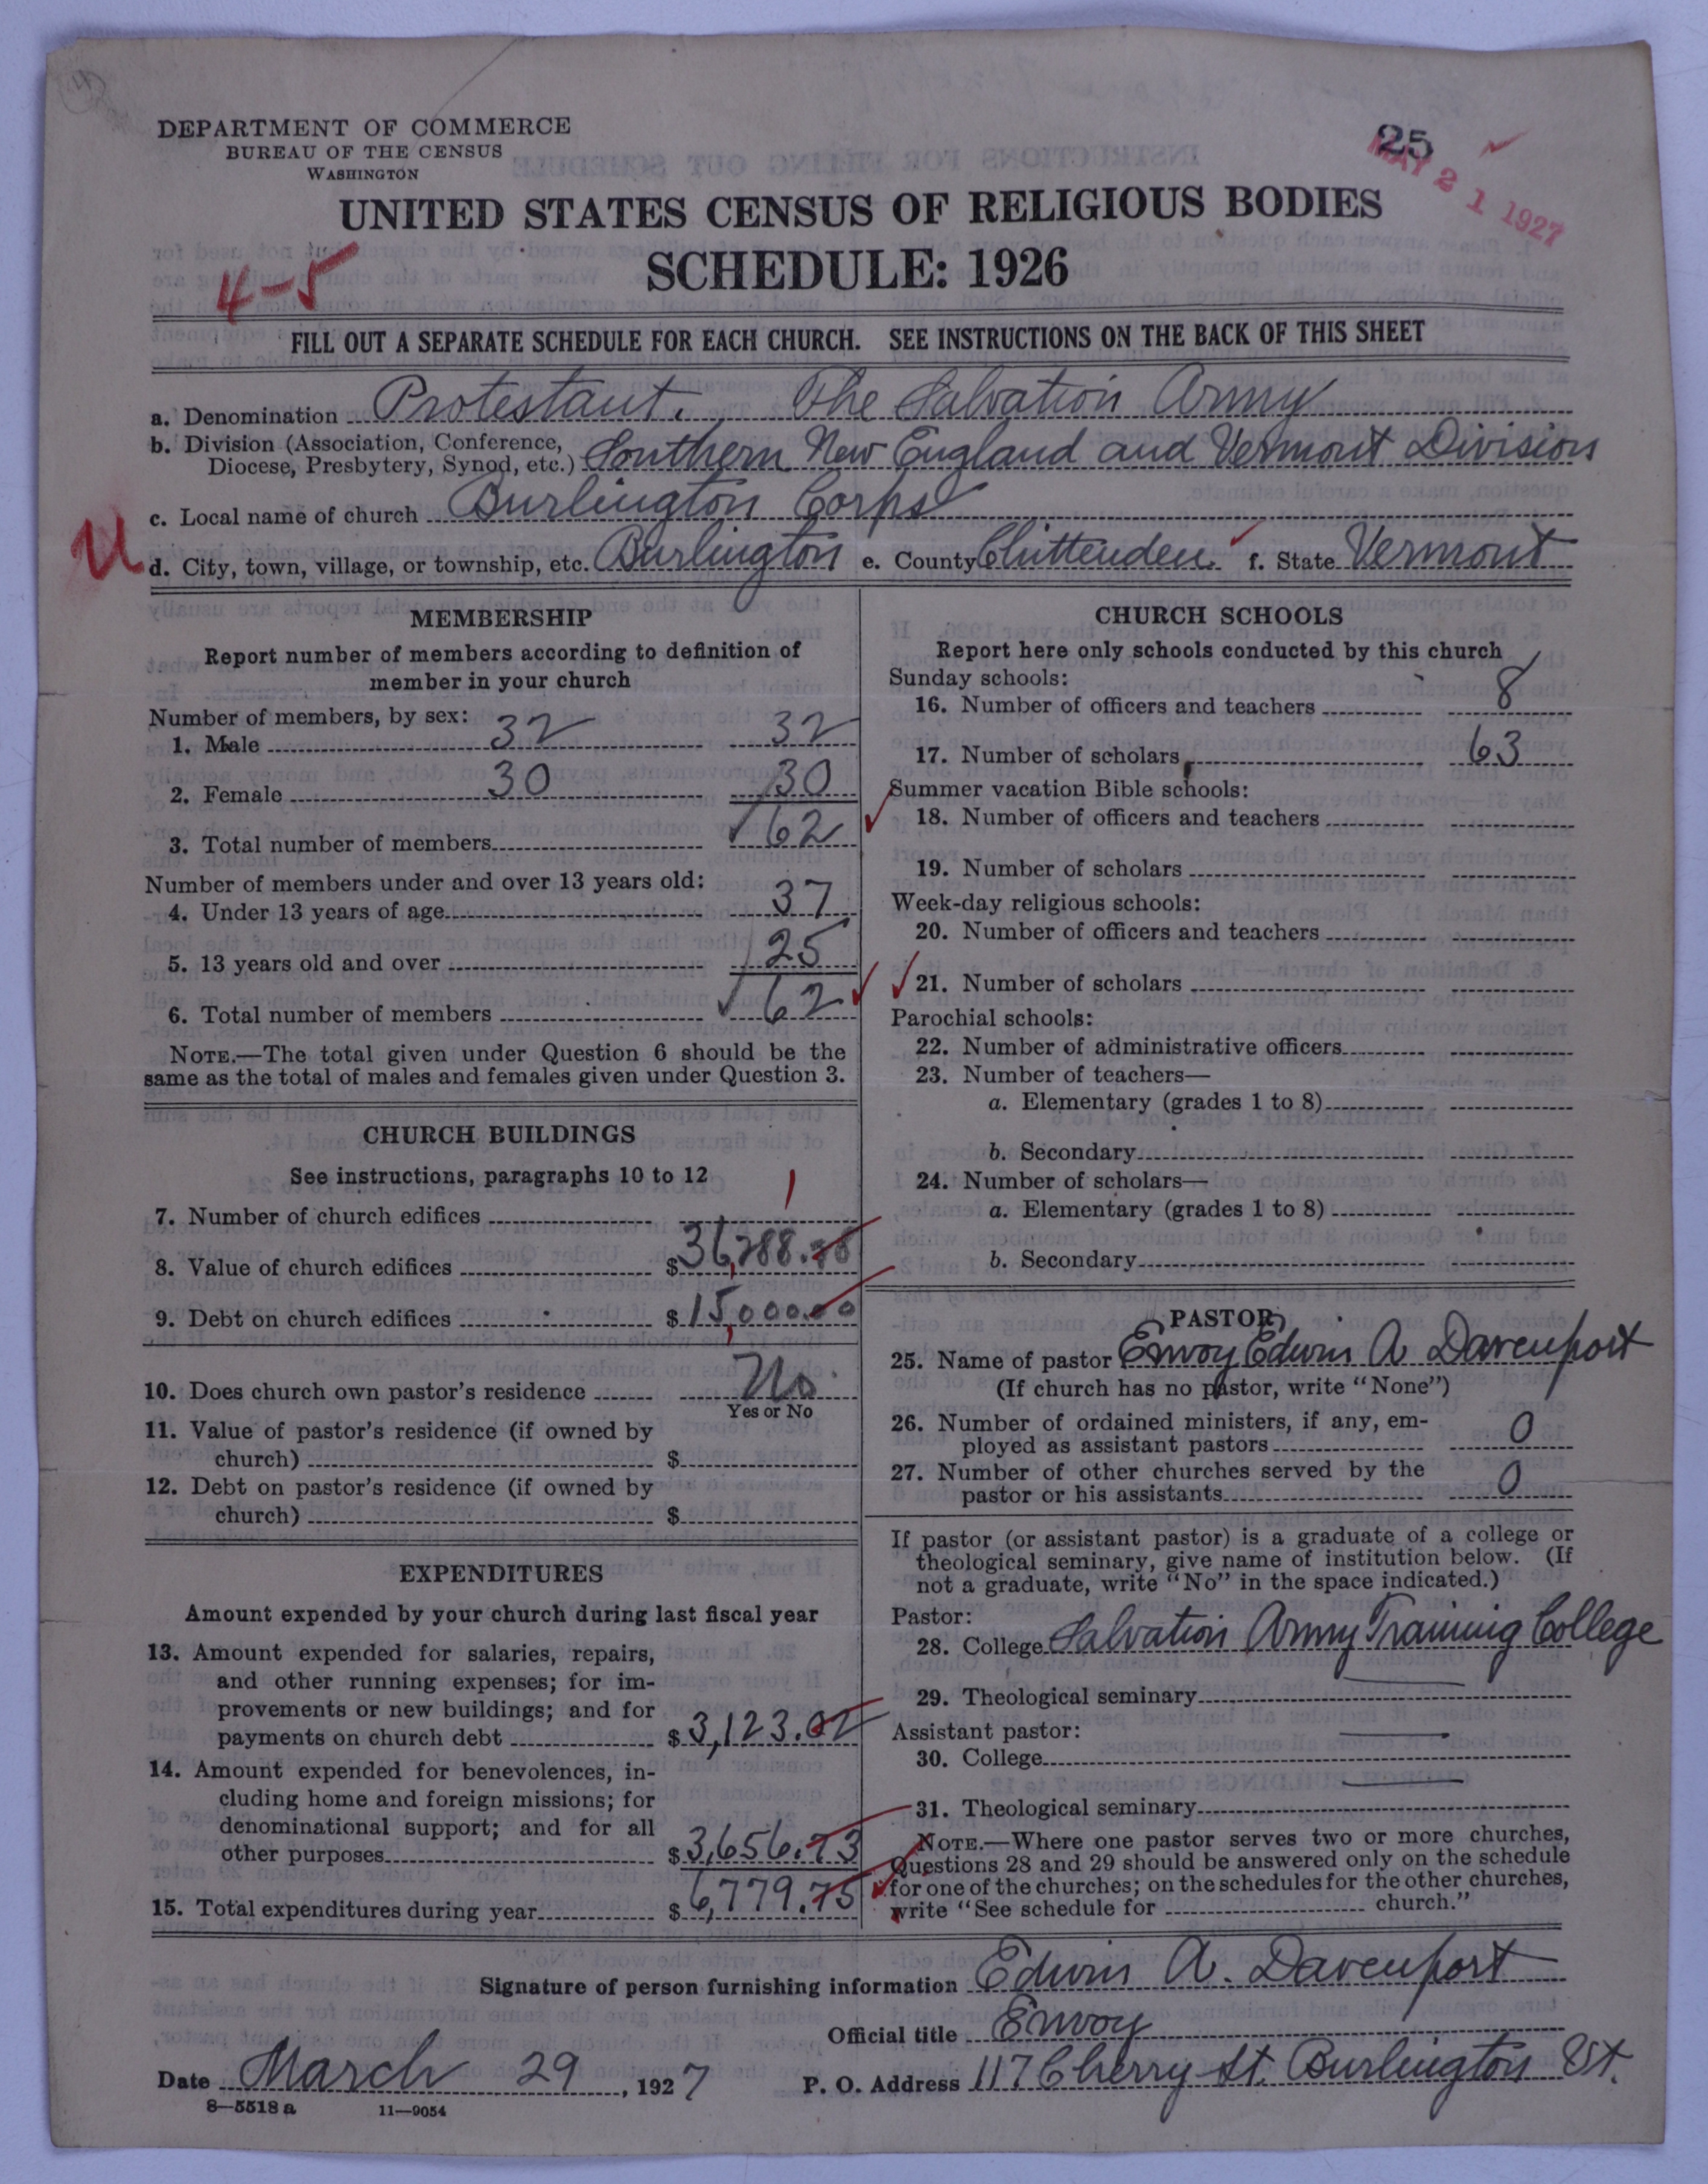 DEPARTMENT OF COMMERCE
BUREAU OF THE CENSUS
WASHINGTON
25
MAY 21 1927
UNITED STATES CENSUS OF RELIGIOUS BODIES
SCHEDULE: 1926
4-5
FILL OUT A SEPARATE SCHEDULE FOR EACH CHURCH. SEE INSTRUCTIONS ON THE BACK OF THIS SHEET
a. Denomination Protestant. The Salvation Army
b. Division (Association, Conference,
Diocese, Presbytery, Synod, etc.) Southern New England and Vermont Division
c. Local name of church Burlington Corps
U
d. City, town, village, or township, etc. Burlington e. County Chittenden f. State Vermont
MEMBERSHIP
Report number of members according to definition of
member in your church
Number of members, by sex:
1. Male 32 32
2. Female 30 30
3. Total number of members 62
Number of members under and over 13 years old:
4. Under 13 years of age 37
5. 13 years old and over 25
6. Total number of members 62
NOTE.—The total given under Question 6 should be the
same as the total of males and females given under Question 3.
CHURCH BUILDINGS
See instructions, paragraphs 10 to 12
7. Number of church edifices 1
8. Value of church edifices $36,288.
9. Debt on church edifices $15,000.00
10. Does church own pastor's residence No
Yes or No
11. Value of pastor's residence (if owned by
church) $
12. Debt on pastor's residence (if owned by
church) $
EXPENDITURES
Amount expended by your church during last fiscal year
13. Amount expended for salaries, repairs,
and other running expenses; for im-
provements or new buildings; and for
payments on church debt $3,123.02
14. Amount expended for benevolences, in-
cluding home and foreign missions; for
denominational support; and for all
other purposes $3,656.73
15. Total expenditures during year $6,779.75
CHURCH SCHOOLS
Report here only schools conducted by this church
Sunday schools:
16. Number of officers and teachers 8
17. Number of scholars 63
Summer vacation Bible schools:
18. Number of officers and teachers
19. Number of scholars
Week-day religious schools:
20. Number of officers and teachers
21. Number of scholars
Parochial schools:
22. Number of administrative officers
23. Number of teachers—
a. Elementary (grades 1 to 8)
b. Secondary
24. Number of scholars—
a. Elementary (grades 1 to 8)
b. Secondary
PASTOR
25. Name of pastor Envoy Edwin A Davenport
(If church has no pastor, write "None")
26. Number of ordained ministers, if any, em-
ployed as assistant pastors 0
27. Number of other churches served by the
pastor or his assistants 0
If pastor (or assistant pastor) is a graduate of a college or
theological seminary, give name of institution below. (If
not a graduate, write "No" in the space indicated.)
Pastor:
28. College Salvation Army Training College
29. Theological seminary
Assistant pastor:
30. College
31. Theological seminary
NOTE.—Where one pastor serves two or more churches,
Questions 28 and 29 should be answered only on the schedule
for one of the churches; on the schedules for the other churches,
write "See schedule for church."
Signature of person furnishing information Edwin A. Davenport
Official title Envoy
Date March 29, 1927 P. O. Address 117 Cherry St. Burlington Vt.
8—5518 a 11—9054